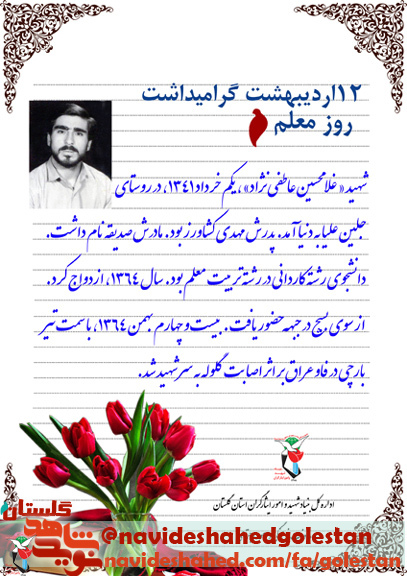 ۱۲اردیبهشت گرامیداشت
روز معلم
شهید «غلامحسین عاطفی نژاد»، یکم خرداد ۱۳۴۱، در روستای
جلین علیا به دنیا آمد. پدرش مهدی کشاورز بود. مادرش صدیقه نام داشت.
دانشجوی رشته کاردانی در رشته تربیت معلم بود. سال ۱۳۶۴، ازدواج کرد.
از سوی بسیج در جبهه حضور یافت. بیست و چهارم بهمن ۱۳۶۴، با سمت تیر
بارچی در فاو عراق بر اثر اصابت گلوله به سر شهید شد.
اداره کل بنیاد شهید و امور ایثارگران استان گلستان
گلستان
نوید شاهد
@navideshahedgolestan
navideshahed.com/fa/golestan